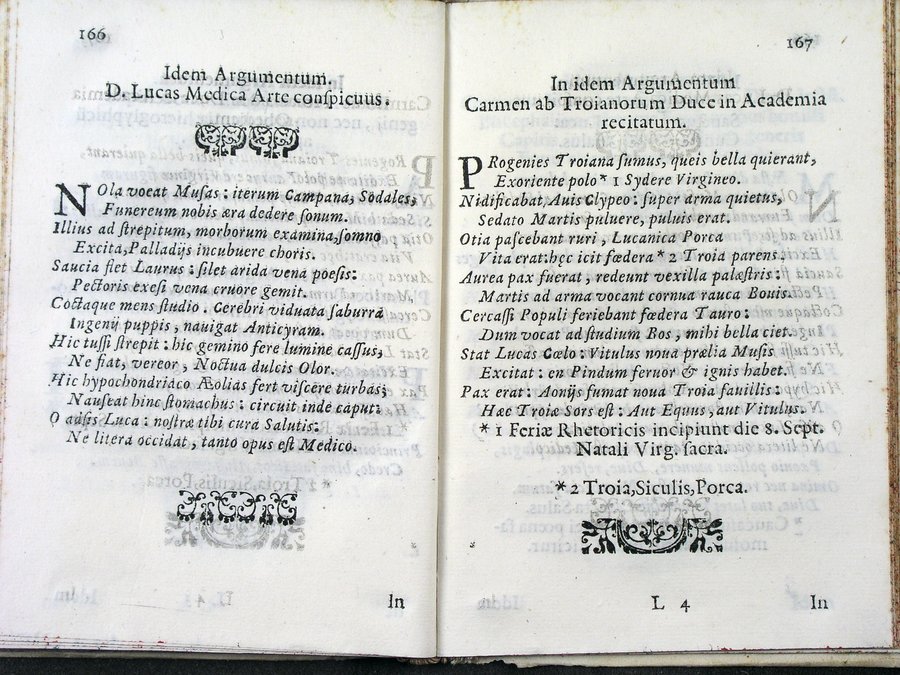 166
Idem Argumentum.
D. Lucas Medica Arte conſpicuus.
NOla vocat Muſas : iterum Campana, Sodales,
Funereum nobis æra dedere ſonum.
Illius ad ſtrepitum, morborum examina,ſomno
Excita,Palladijs incubuere choris.
Saucia flet Laurus : ſilet arida vena poeſis:
Pectoris exeſi vena cruore gemit.
Coctaque mens ſtudio . Cerebri viduata ſaburra
Ingenij puppis , nauigat Anticyram.
Hic tuſſi ſtrepit : hic gemino fere lumine caſſus,
Ne fiat, vereor , Noctua dulcis Olor.
Hic hypochondriaco Æolias fert viſcere turbas;
Nauſeat hinc ſtomachus : circuit inde caput:
O adſis Luca : noſtræ tibi cura Salutis:
Ne litera occidat , tanto opus eſt Medico.
In
167
In idem Argumentum
Carmen ab Troianorum Duce in Academia
recitatum.
PRogenies Troiana ſumus, queis bella quierant,
Exoriente polo* 1 Sydere Virgineo.
Nidificabat Auis Clypeo : ſuper arma quietus,
Sedato Martis puluere, puluis erat.
Otia paſcebant ruri , Lucanica Porca
Vita erat:hęc icit fœdera * 2 Troia parens.
Aurea pax fuerat , redeunt vexilla palæſtris :
Martis ad arma vocant cornua rauca Bouis.
Cercaſſi Populi feriebant fœdera Tauro :
Dum vocat ad ſtudium Bos , mihi bella ciet.
Stat Lucas Cœlo : Vitulus noua prælia Muſis
Excitat : en Pindum feruor & ignis habet.
Pax erat : Aonijs fumat noua Troia fauillis :
Hæc Troiæ Sors eſt : Aut Equus, aut Vitulus.
* 1 Feriæ Rhetoricis incipiunt die 8. Sept.
Natali Virg. ſacra.
* 2 Troia,Siculis,Porca.
L 4
In